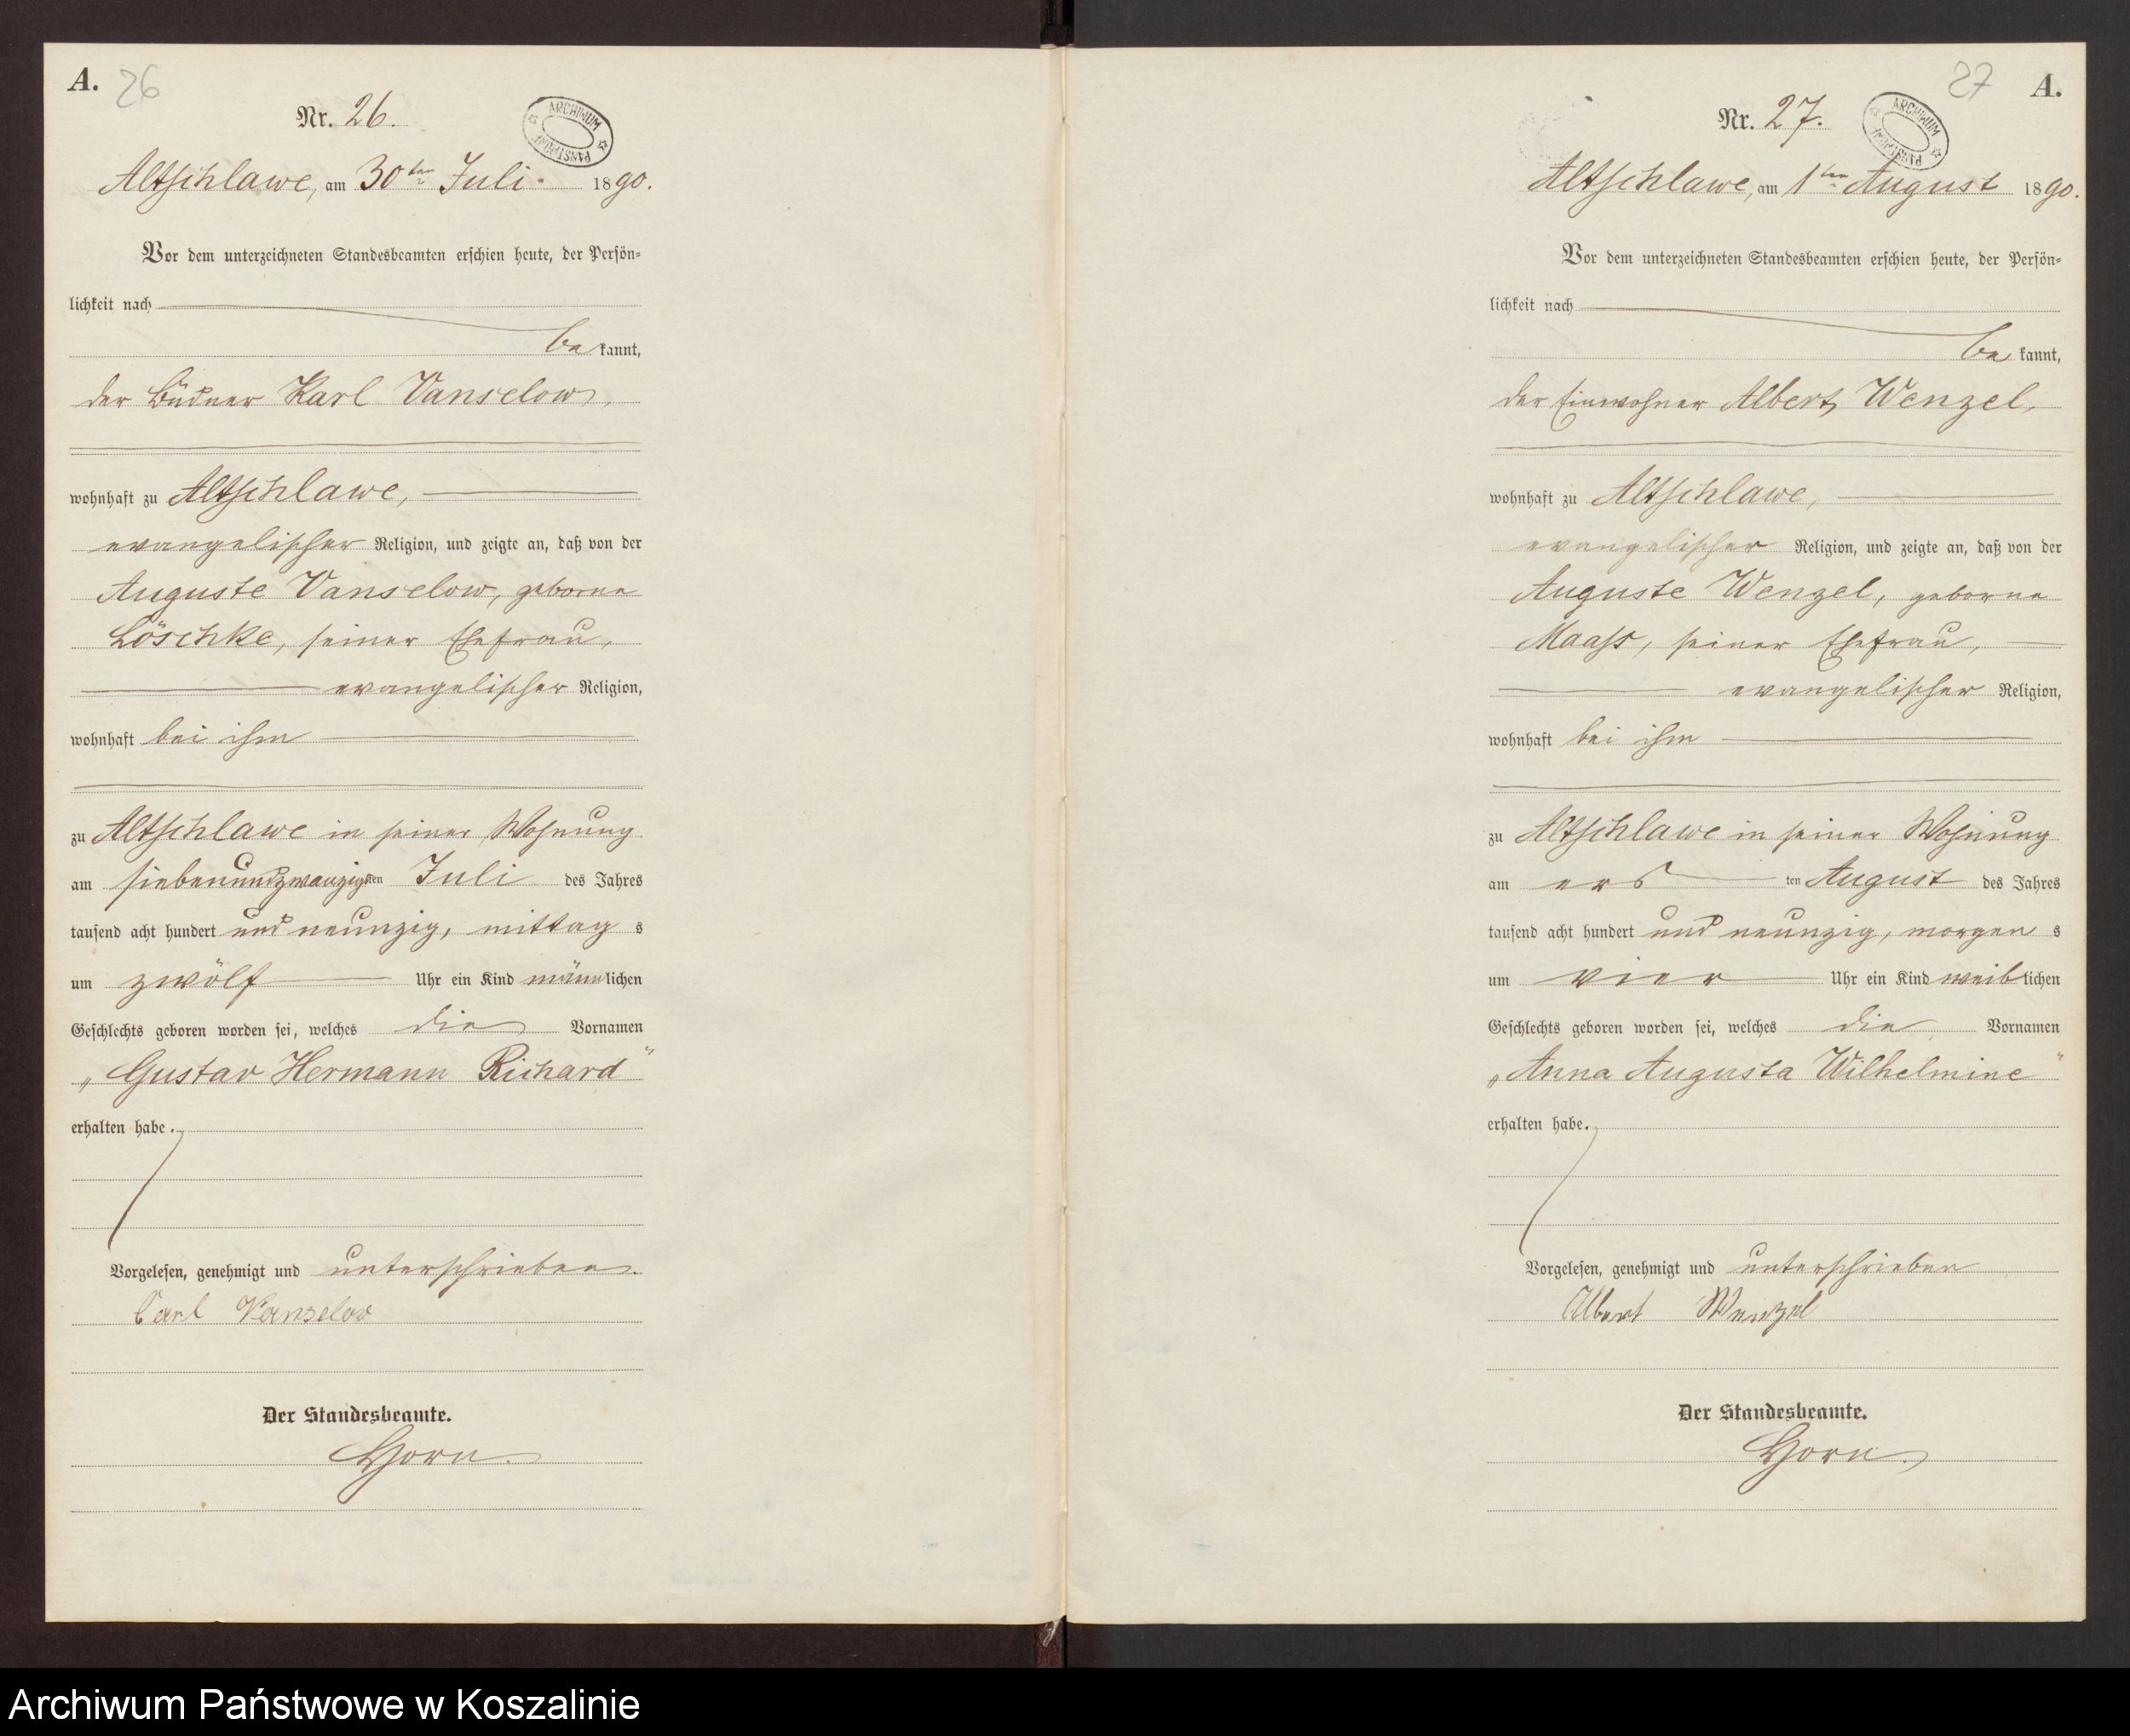 A. 26
Nr. 26.
ARCHIWUM PAŃSTWOWE
Altschlawe, am 30ten Juli 1890.
Vor dem unterzeichneten Standesbeamten erschien heute, der Persön-
lichkeit nach
bekannt,
der Büdner Karl Vanselow,
wohnhaft zu Altschlawe,
evangelischer Religion, und zeigte an, daß von der
Auguste Vanselow, geborne
Löschke, seiner Ehefrau,
evangelischer Religion,
wohnhaft bei ihm
zu Altschlawe in seiner Wohnung
am siebenundzwanzigsten Juli des Jahres
tausend acht hundert und neunzig, mittags
um zwölf Uhr ein Kind männlichen
Geschlechts geboren worden sei, welches die Vornamen
„Gustav Hermann Richard"
erhalten habe.
Vorgelesen, genehmigt und unterschrieben.
Carl Vanselow
Der Standesbeamte.
Horn.
27 A.
Nr. 27.
ARCHIWUM PAŃSTWOWE
Altschlawe, am 1ten August 1890.
Vor dem unterzeichneten Standesbeamten erschien heute, der Persön-
lichkeit nach
bekannt,
der Einwohner Albert Wenzel,
wohnhaft zu Altschlawe,
evangelischer Religion, und zeigte an, daß von der
Auguste Wenzel, geborne
Maass, seiner Ehefrau,
evangelischer Religion,
wohnhaft bei ihm
zu Altschlawe in seiner Wohnung
am ersten August des Jahres
tausend acht hundert und neunzig, morgens
um vier Uhr ein Kind weiblichen
Geschlechts geboren worden sei, welches die Vornamen
„Anna Augusta Wilhelmine"
erhalten habe.
Vorgelesen, genehmigt und unterschrieben
Albert Wenzel
Der Standesbeamte.
Horn.
Archiwum Państwowe w Koszalinie